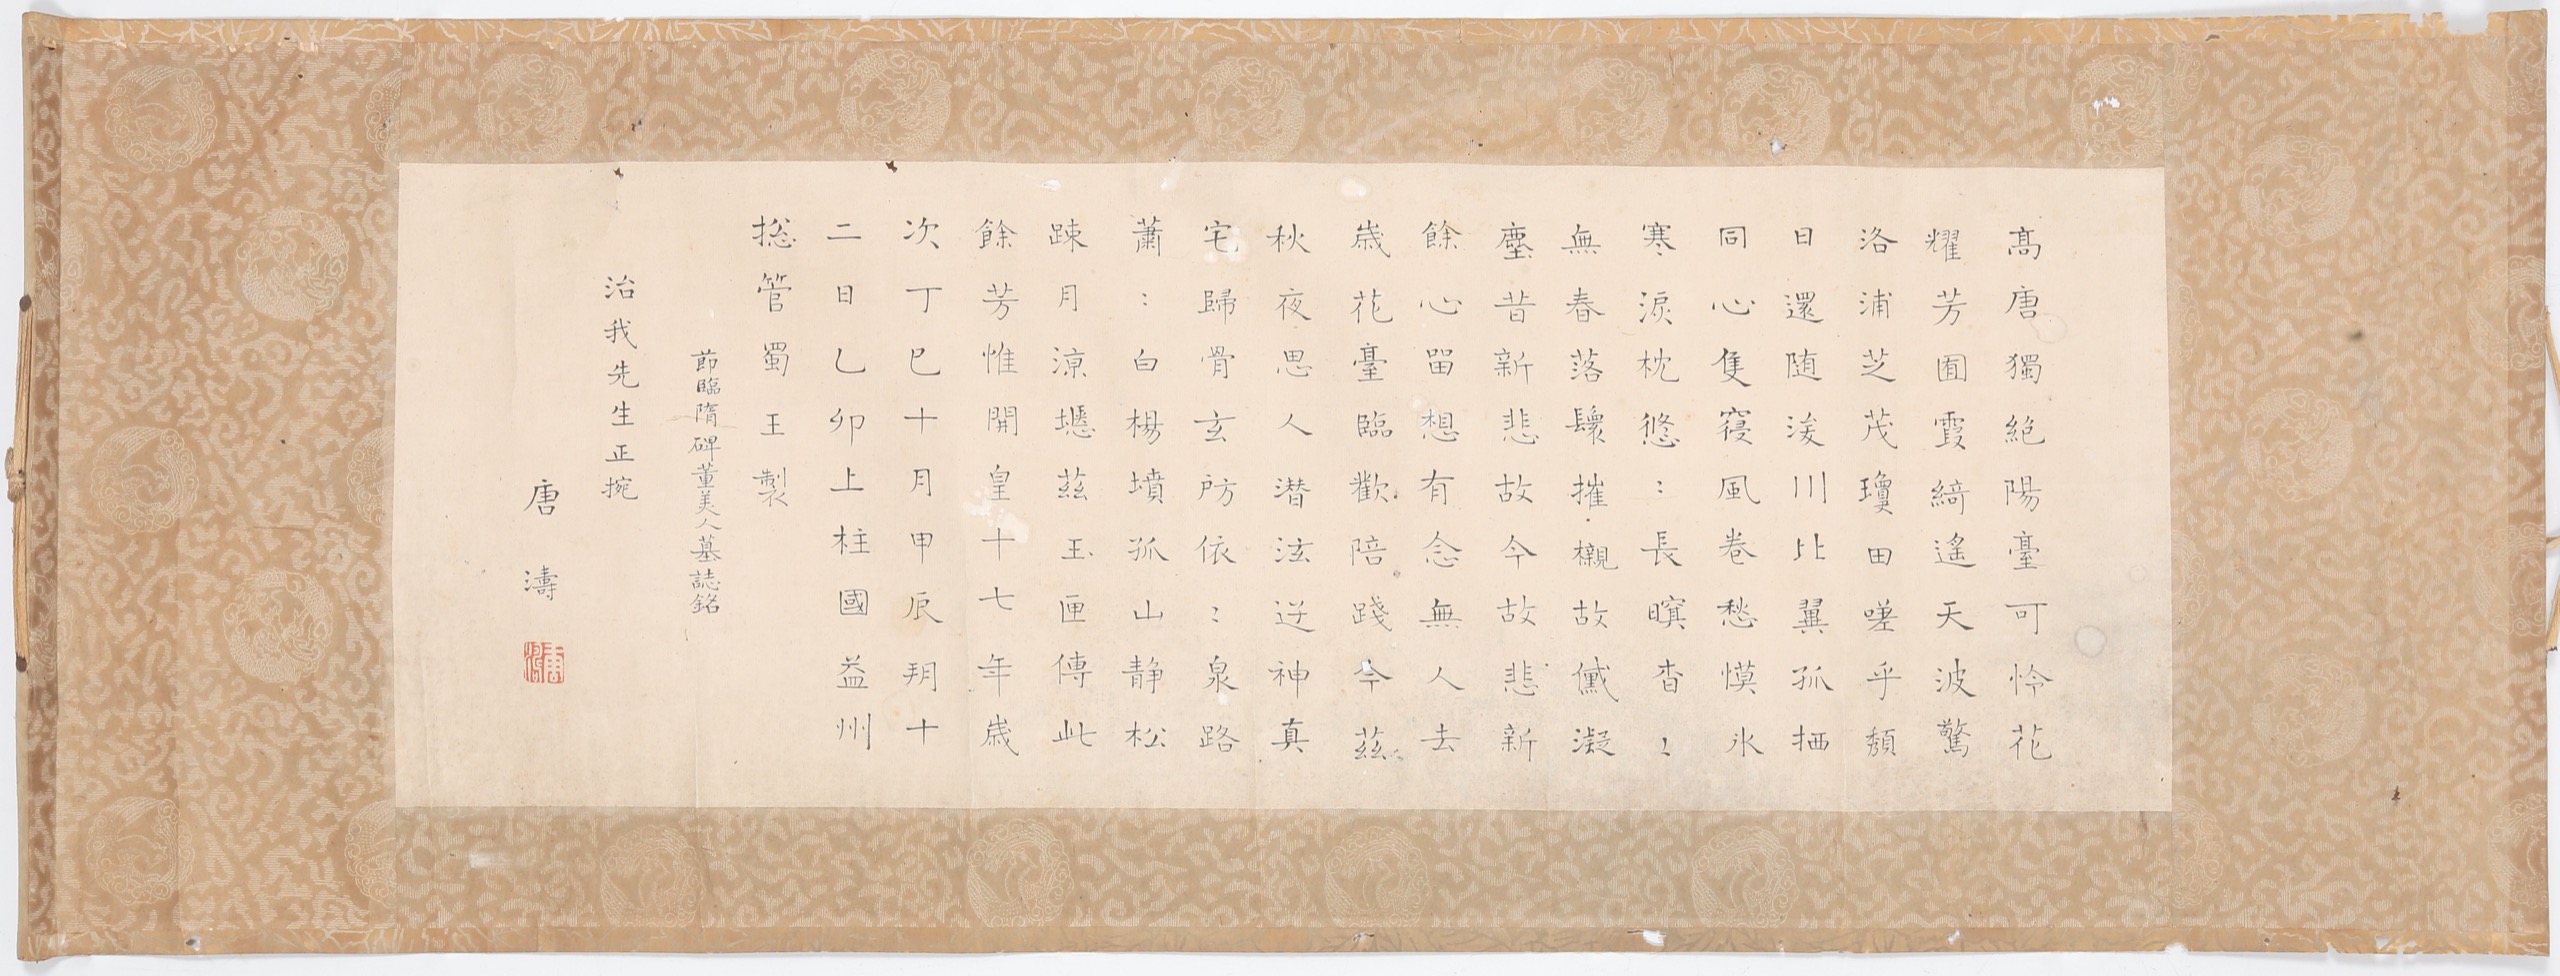 高唐獨絕陽臺可怜花
耀芳囿霞綺遙天波驚
洛浦芝茂瓊田嗟乎頹
日還随浚川比翼孤栖
同心隻寑風卷愁慔氷
寒淚枕悠：長暝杳：
無春落鬟摧櫬故黛凝
塵昔新悲故今故悲新
餘心留想有念無人去
歳花臺臨歡陪踐今茲
秋夜思人潜泫迸神真
宅歸骨玄房依：泉路
蕭：白楊墳孤山静松
踈月涼壥茲玉匣傳此
餘芳惟開皇十七年歳
次丁巳十月甲辰玥十
二日乙卯上柱國益州
捴管蜀王製
節臨隋碑董美人墓誌銘
治我先生正捥
唐濤